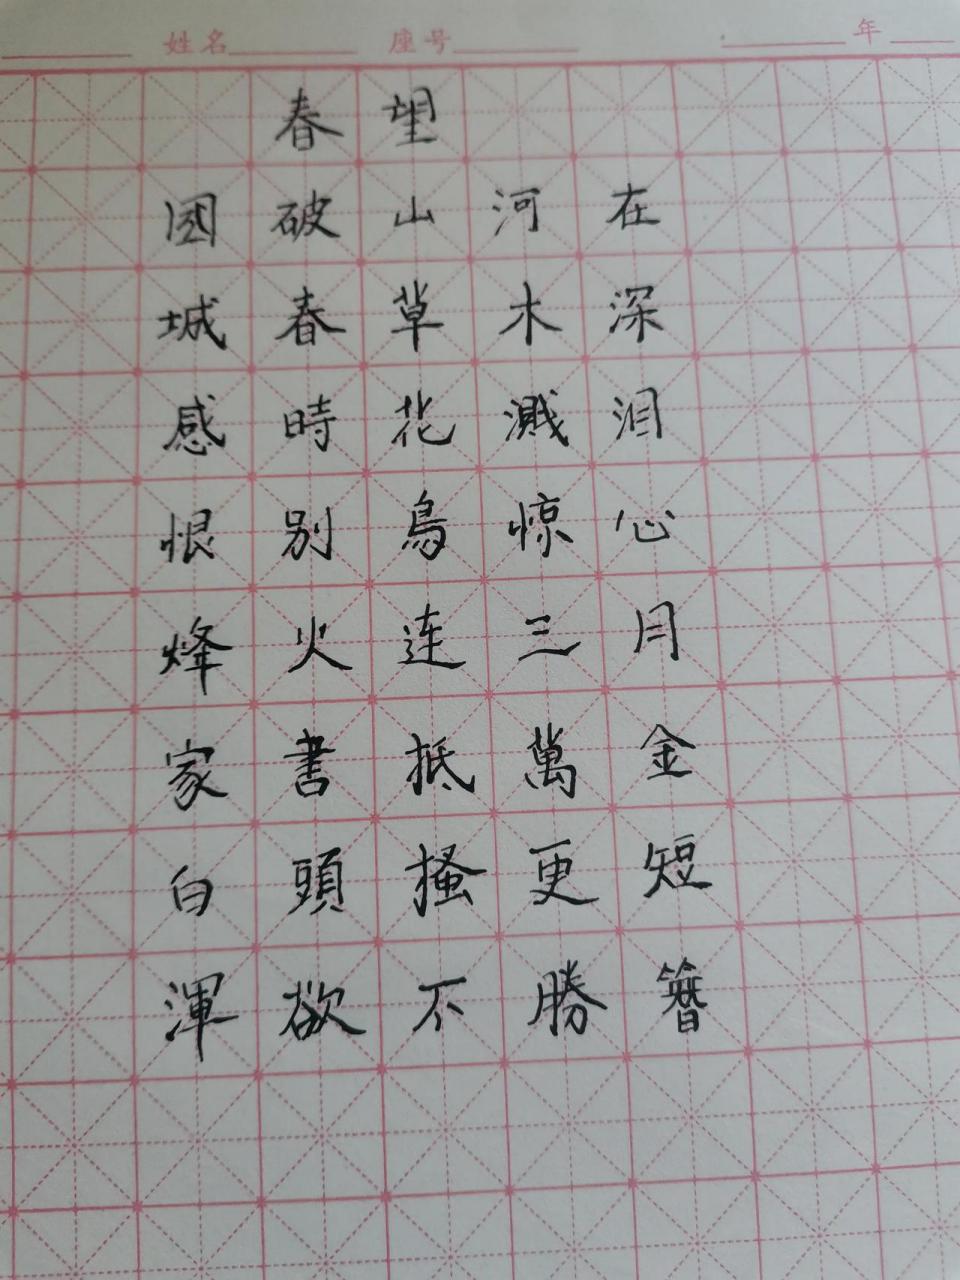 姓名 座号 年
春望
國破山河在
城春草木深
感時花濺泪
恨别鳥惊心
烽火连三月
家書抵萬金
白頭搔更短
渾欲不勝簪